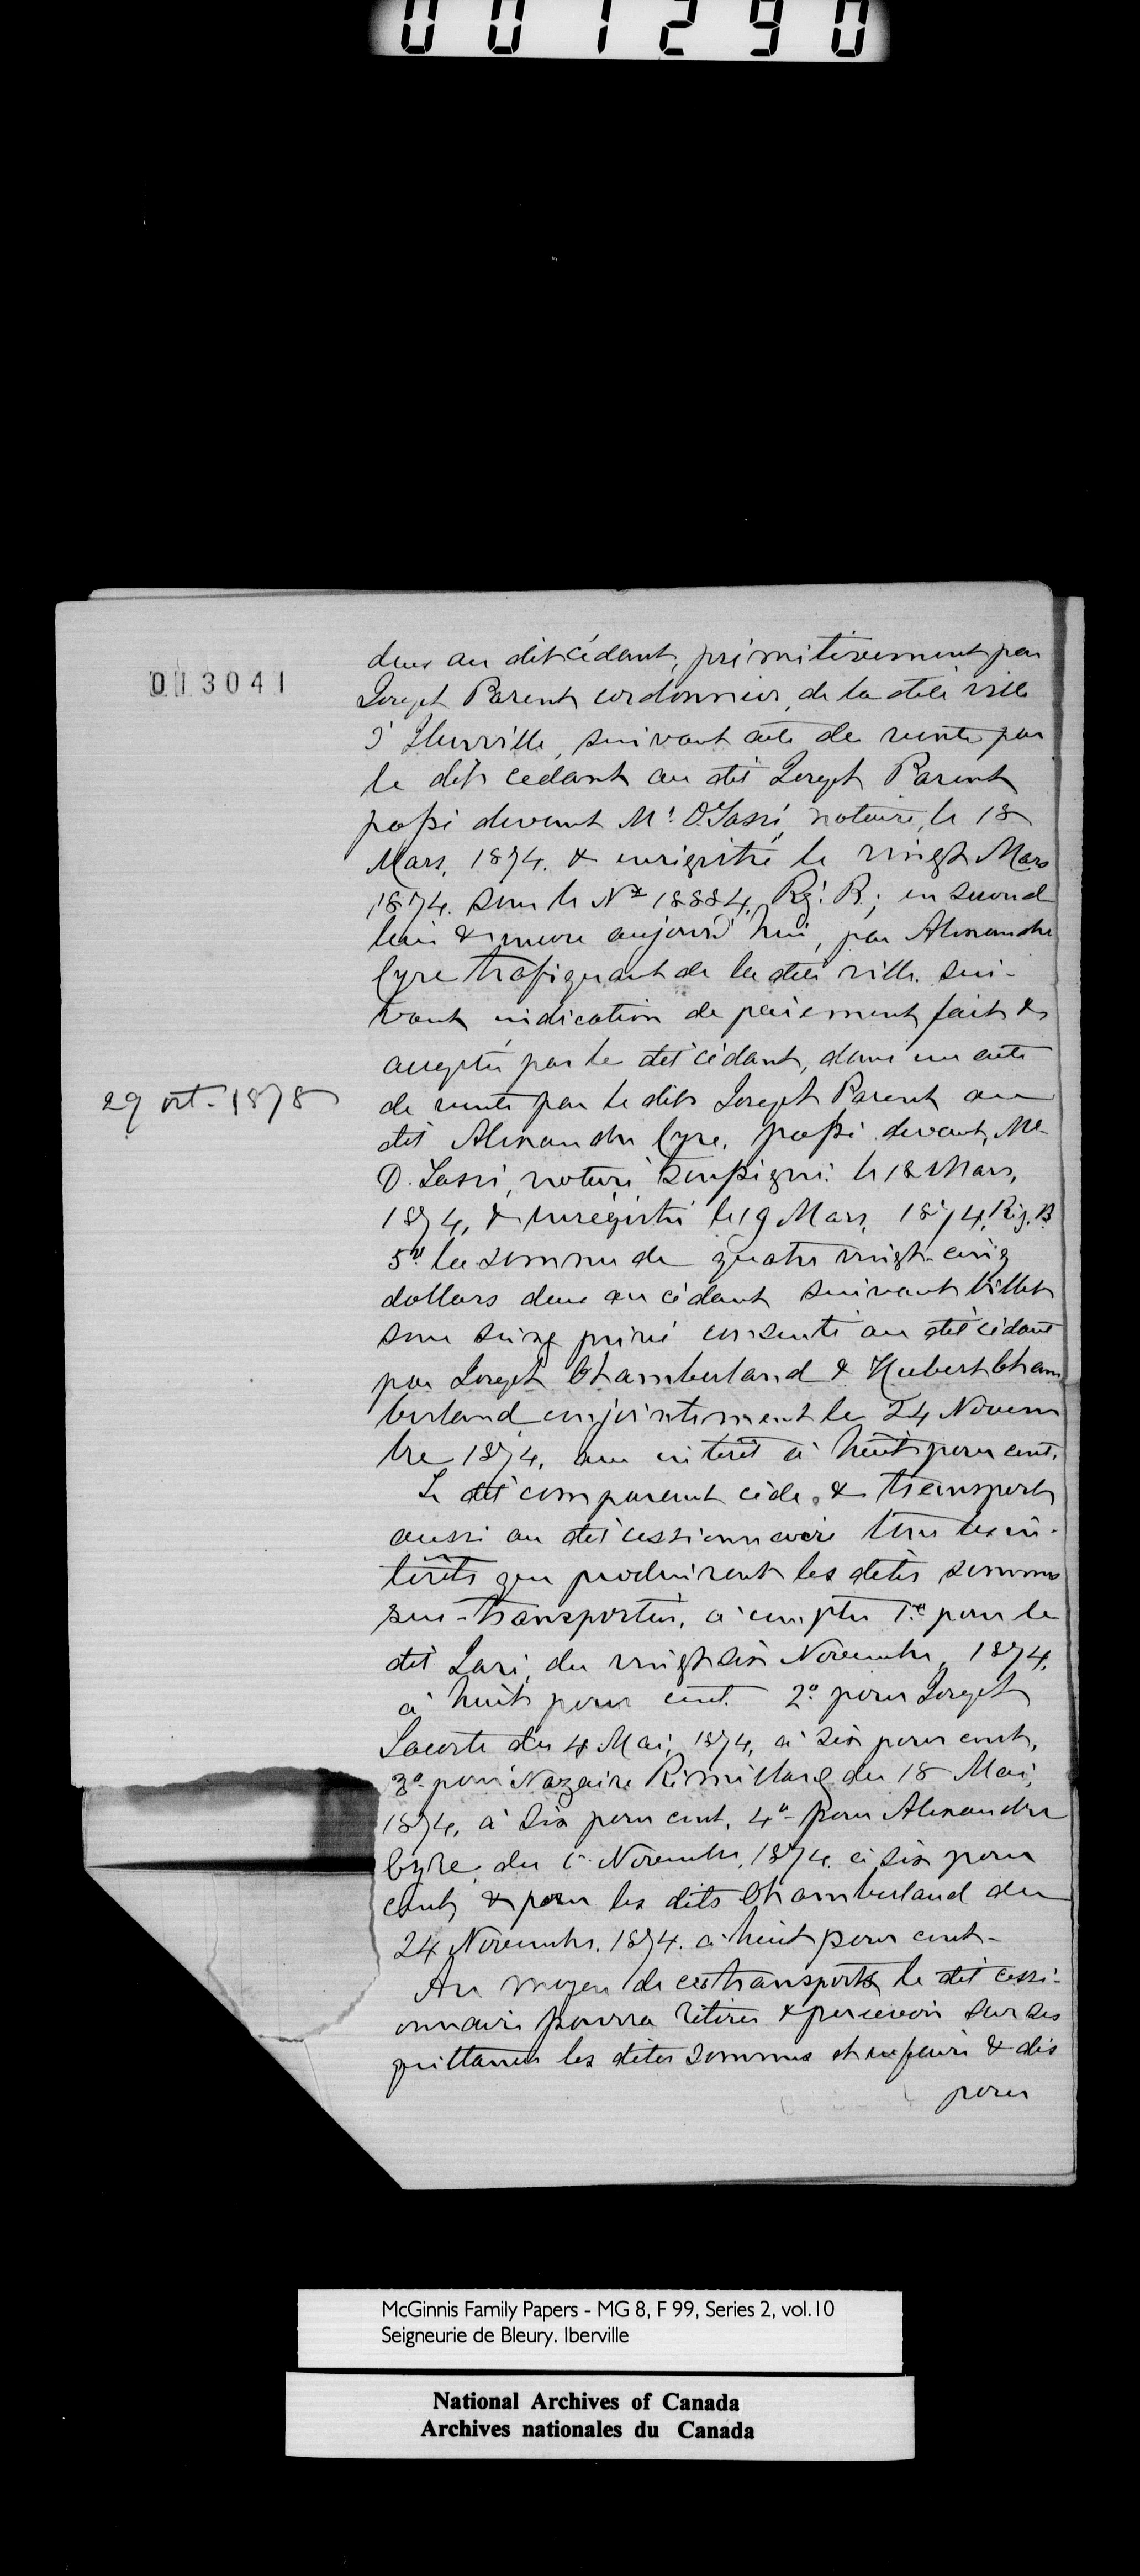 001290
013041
dues au dit cédant, primitivement par
Joseph Parent cordonnier, de la dite ville
d'Iberville, suivant acte de vente par
le dit cedant au dit Joseph Parent
passé devant Mr. O. Tassé, notaire, le 18
Mars, 1874. & enrigistré le vingt Mars
1874. sous le No 18884, Rg. B.; en second
lieu & encore aujourd'hui, par Alexandre
Cyre trafiquant de la dite ville. sui-
vant indication de paiement fait &
accepté par le dit cédant, dans un acte
29 oct. 1878
de vente par le dit Joseph Parent au
dit Alexandre Cyre, passé devant, Me
O. Tassé, notaire soussigné. le 18 Mars,
1874, & enregistré le 19 Mars, 1874, Rég. B
5º la somme de quatre vingt-cinq
dollars due au cédant suivant billet
sous seing privé consenti au dit cédant
par Joseph Chamberland & Hubert Cham
berland conjointement le 24 Novem
bre 1874, avec intérêt à huit pour cent.
Le dit comparant cède & transporte
aussi au dit cessionnaire tous les in-
térêts que produiront les dites sommes
sus-transportées, à compter 1º pour le
dit du vingt six Novembre, 1874,
à huit pour cent. 2º pour Joseph
Lacoste du 4 Mai, 1874, à six pour cent,
3º pour Nazaire Rémillard du 18 Mai,
1874, à six pour cent, 4º pour Alexandre
Cyre, du Novembre, 1874. à six pour
cent, & pour les dits Chamberland du
24 Novembre. 1874. à huit pour cent-
Au moyen de ces transports le dit cessi-
onnaire pourra retirer & percevoir sur ses
quittances les dites sommes et en faire & dis
poser
McGinnis Family Papers - MG 8, F 99, Series 2, vol.10
Seigneurie de Bleury. Iberville
National Archives of Canada
Archives nationales du Canada